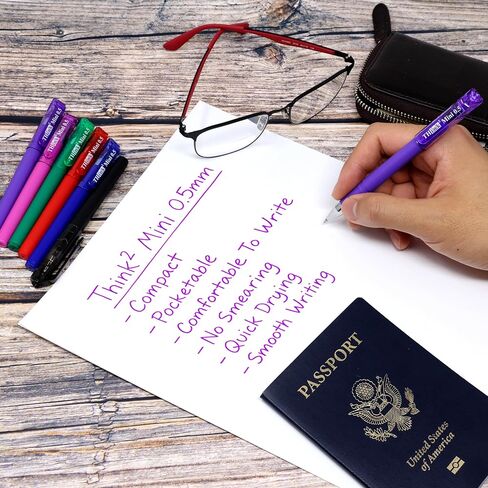 Think² Mini 0.5mm
- Compact
- Pocketable
- Comfortable To Write
- No Smearing
- Quick Drying
- Smooth Writing
PASSPORT
United States
of America
THINK2 Mini 0.5
THINK2 Mini 0.5
THINK2 Mini 0.5
THINK2 Mini 0.5
THINK2 Mini 0.5
THINK2 Mini 0.5